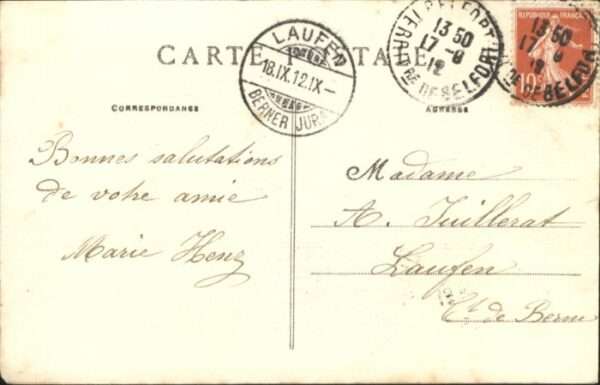 CARTE POSTALE
LAUFEN
18.IX.12.IX-
BERNER JURA
BELFORT
13 50
17-9
12
TERRRE DE BELFORT
REPUBLIQUE FRANÇAISE
10
CORRESPONDANCE
ADRESSE
Bonnes salutations
de votre amie
Marie Henz
Madame
A. Juillerat
Laufen
Ct. de Berne